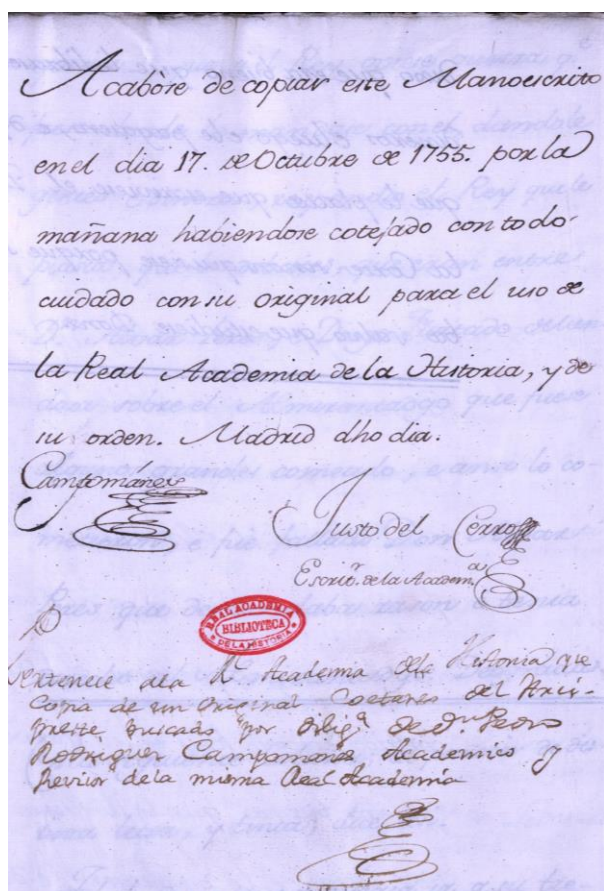 Acabóse de copiar este Manoescrito
en el dia 17. de Octubre de 1755. por la
mañana habiendose cotejado con todo
cuidado con su original para el uso de
la Real Academia de la Historia, y de
su orden. Madrid dho dia.
Campománes
Justo del Cerro
Escrit.º de la Academ.ª
REAL ACADEMIA
BIBLIOTECA
DE LA HISTORIA
Pertenece a la Rl Academia de la Historia que
Copia de un Original Coetaneo del Arci-
preste, buscado por Dilig.ª de Dn. Pedro
Rodriguez Campomanes Academico y
Revisor de la misma Real Academia